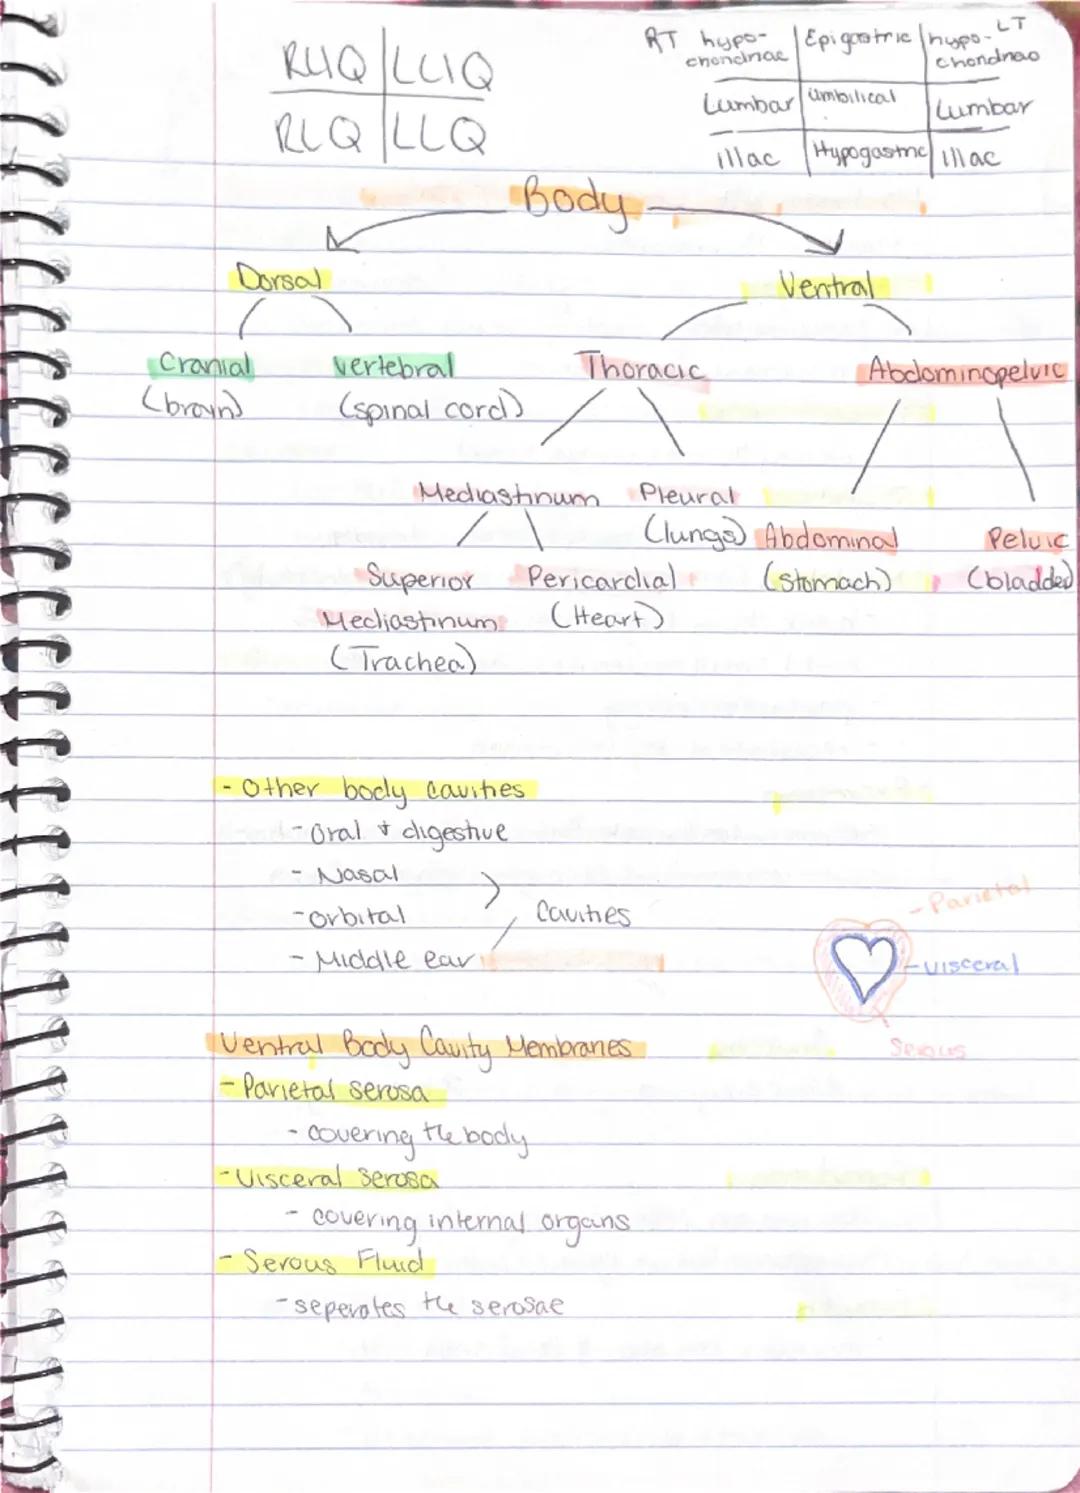 RUQ LUQ
RLQ LLQ
RT hypo- Epigastric hypo- LT
chondriac chondriac
Lumbar umbilical Lumbar
illac Hypogastric illac
Body
Dorsal Ventral
Cranial vertebral Thoracic Abdominopelvic
(brain) (spinal cord)
Mediastinum Pleural
(lungs) Abdominal Pelvic
Superior Pericardial (stomach) (bladder)
Mediastinum (Heart)
(Trachea)
- Other body cavities
- Oral & digestive
- Nasal
- orbital Cavities
- Middle ear
- Parietal
- visceral
Serous
Ventral Body Cavity Membranes
- Parietal serosa
- covering the body
- Visceral Serosa
- covering internal organs
- Serous Fluid
- seperates the serosae